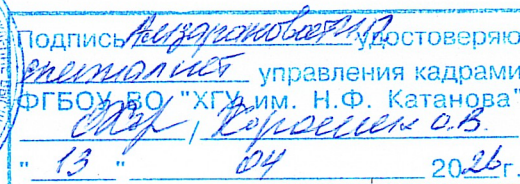 Подпись удостоверяю
специалист управления кадрами
ФГБОУ ВО "ХГУ им. Н.Ф. Катанова"
/ О.В.
" 13 " 04 2026 г.